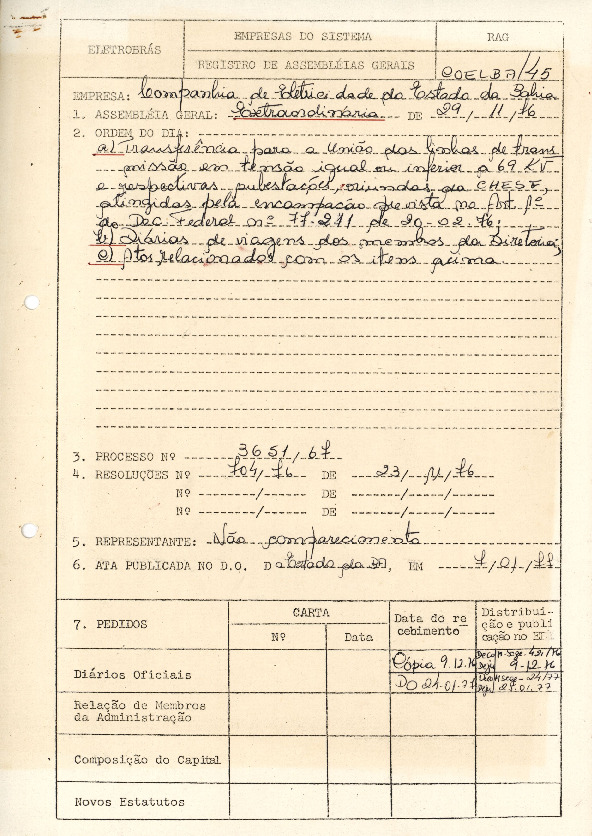 ELETROBRÁS
EMPRESAS DO SISTEMA
RAG
REGISTRO DE ASSEMBLÉIAS GERAIS
COELBA/45
EMPRESA: Companhia de Eletricidade do Estado da Bahia
1. ASSEMBLÉIA GERAL: Extraordinária DE 29/11/76
2. ORDEM DO DIA:
a) Transferência para a União das linhas de trans
missão em tensão igual ou inferior a 69 KV
e respectivas subestações, oriundas da CHESF,
atingidas pela encampação prevista no Art. 1º
do Dec. Federal nº 77.271 de 20-02-76;
b) Diárias de viagens dos membros da Diretoria;
c) Atos relacionados com os itens acima
3. PROCESSO Nº 3651/67
4. RESOLUÇÕES Nº 704/76 DE 23/11/76
Nº ------/------ DE ------/-----/------
Nº ------/------ DE ------/-----/------
5. REPRESENTANTE: Não comparecimento
6. ATA PUBLICADA NO D.O. Do Estado da BA, EM 7/01/77
7. PEDIDOS
CARTA
Nº
Data
Data do re
cebimento
Distribui-
ção e publi
cação no
Diários Oficiais
Cópia 9.12.76
9-12-76
DO 21-01-77
21.01.77
Relação de Membros
da Administração
Composição do Capital
Novos Estatutos